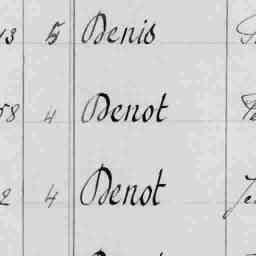 13 5 Denis
58 4 Denot
2 4 Denot Je